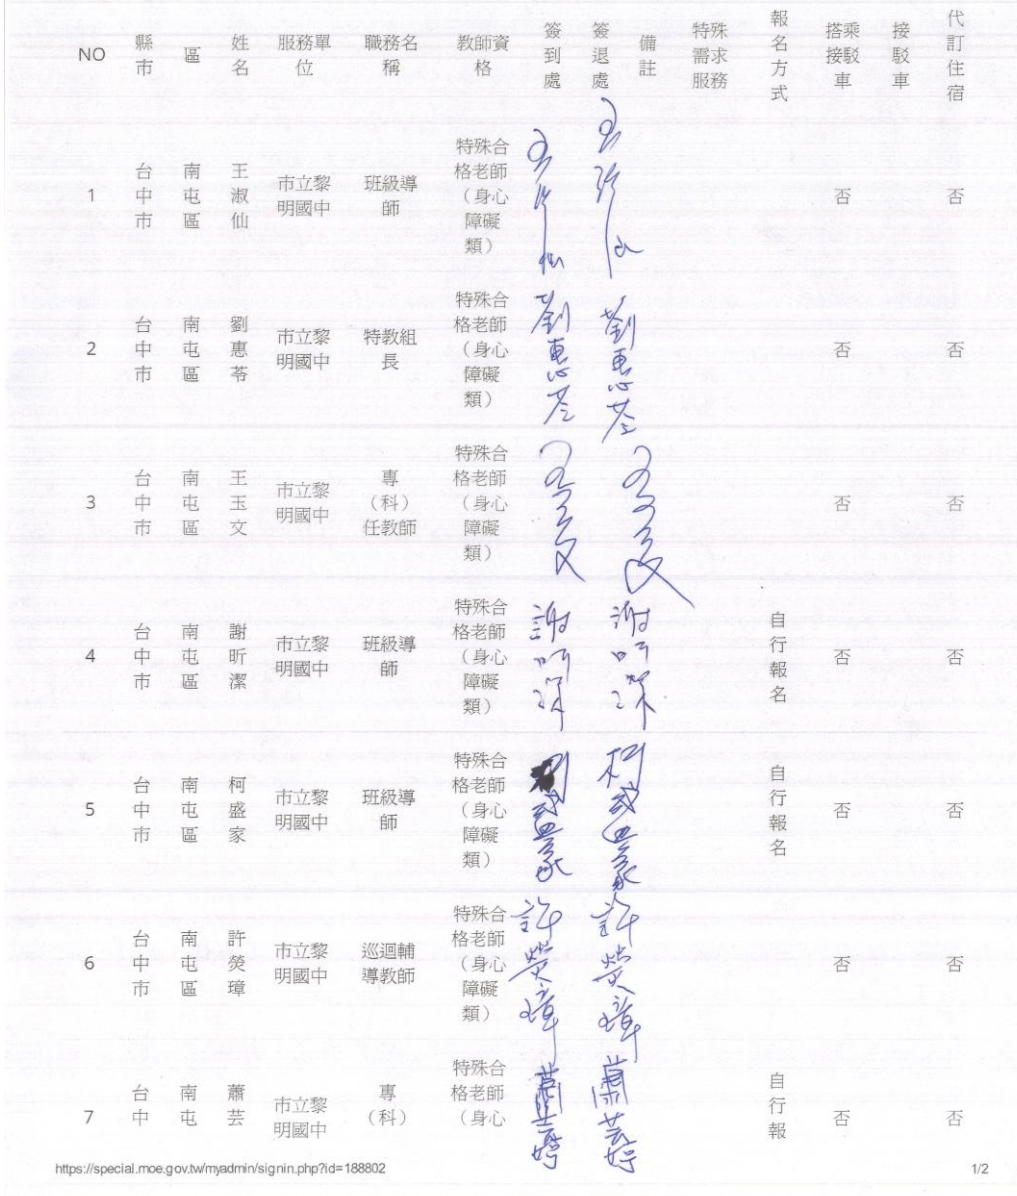 NO 縣市 區 姓名 服務單位 職務名稱 教師資格 簽到處 簽退處 備註 特殊需求服務 報名方式 搭乘接駁車 接駁車 代訂住宿
1 台中市 南屯區 王淑仙 市立黎明國中 班級導師 特殊合格老師（身心障礙類） 否 否
2 台中市 南屯區 劉惠苓 市立黎明國中 特教組長 特殊合格老師（身心障礙類） 劉惠苓 劉惠苓 否 否
3 台中市 南屯區 王玉文 市立黎明國中 專（科）任教師 特殊合格老師（身心障礙類） 王玉文 王玉文 否 否
4 台中市 南屯區 謝昕潔 市立黎明國中 班級導師 特殊合格老師（身心障礙類） 自行報名 否 否
5 台中市 南屯區 柯盛家 市立黎明國中 班級導師 特殊合格老師（身心障礙類） 柯盛家 柯盛家 自行報名 否 否
6 台中市 南屯區 許熒璋 市立黎明國中 巡迴輔導教師 特殊合格老師（身心障礙類） 許熒璋 許熒璋 否 否
7 台中 南屯 蕭芸 市立黎明國中 專（科） 特殊合格老師（身心 蕭芸婷 蕭芸婷 自行報 否 否
https://special.moe.gov.tw/myadmin/signin.php?id=188802 1/2